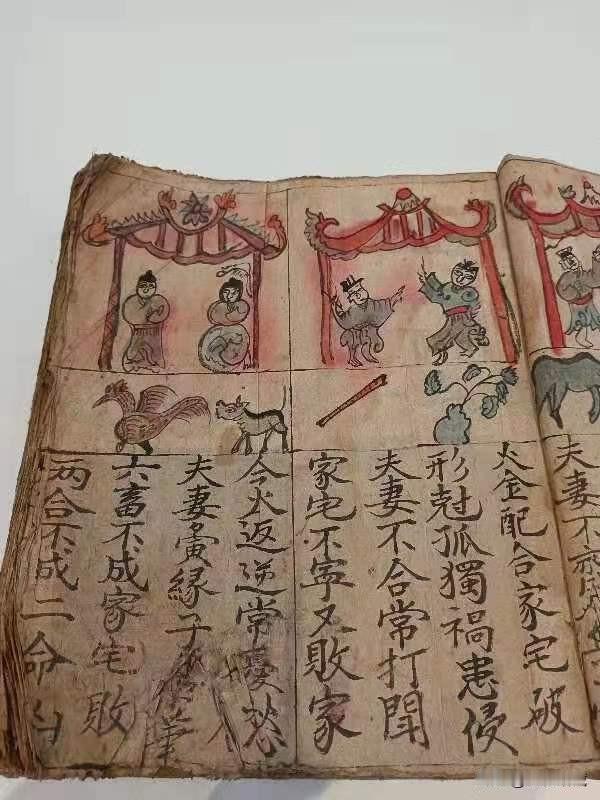 夫妻不
火金配合家宅破
形尅孤獨禍患侵
夫妻不合常打聞
家宅不寧又敗家
令火返逆常憂愁
夫妻寅緣子
六畜不成家宅敗
两合不成二命